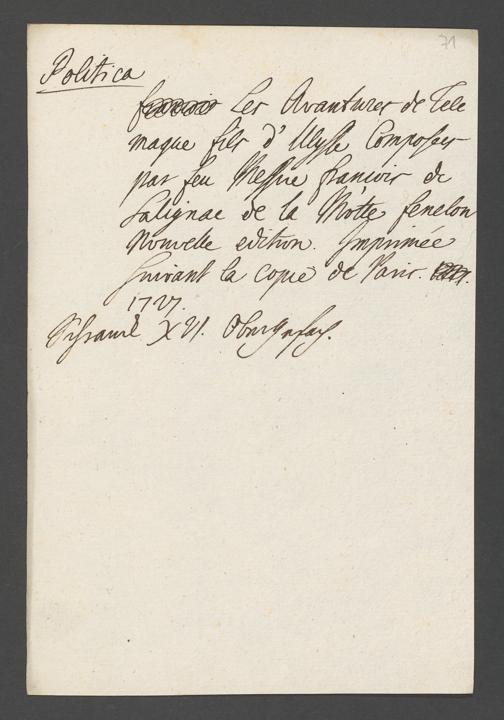 71
Politica
francois Les Avantures de Tele
maque fils d'Ulysse Composeés
par feu Messire francois de
Salignac de la Motte fenelon
Nouvelle edition. Imprimée
suivant la copie de Paris.
1727.
Schranck XVI. Obergefach.